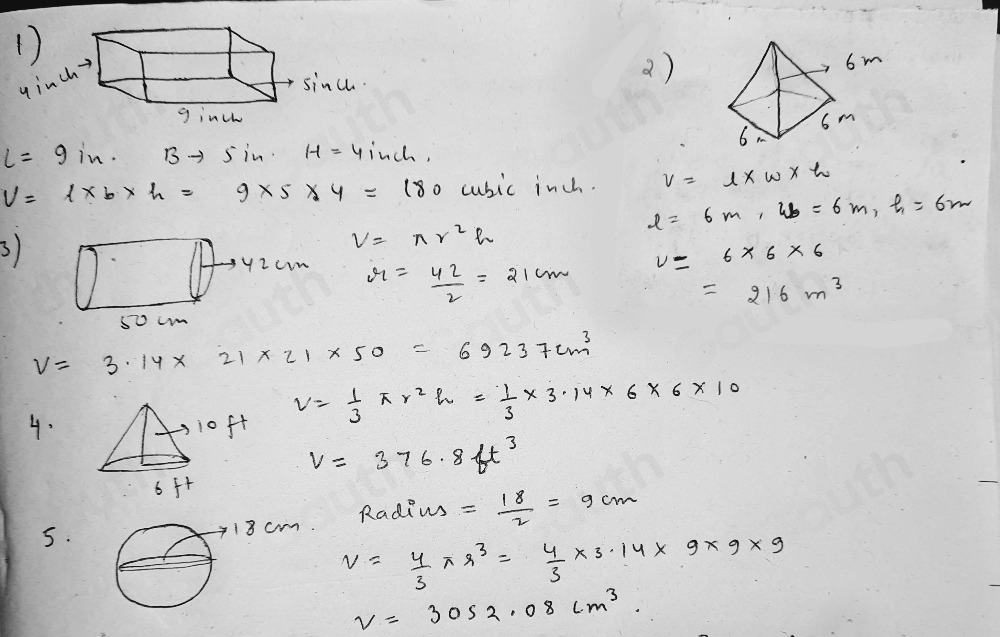 1)
4 inch
5 inch.
9 inch
L = 9 in. B → 5 in. H = 4 inch.
V = l × b × h = 9 × 5 × 4 = 180 cubic inch.
2)
6 m
6 m
6 m
V = l × w × h
l = 6 m, b = 6 m, h = 6 m
V = 6 × 6 × 6
= 216 m³
3)
42 cm
50 cm
V = πr²h
r = 42/2 = 21 cm
V = 3.14 × 21 × 21 × 50 = 69237 cm³
4.
10 ft
6 ft
V = 1/3 πr²h = 1/3 × 3.14 × 6 × 6 × 10
V = 376.8 ft³
5.
18 cm.
Radius = 18/2 = 9 cm
V = 4/3 πr³ = 4/3 × 3.14 × 9 × 9 × 9
V = 3052.08 cm³.